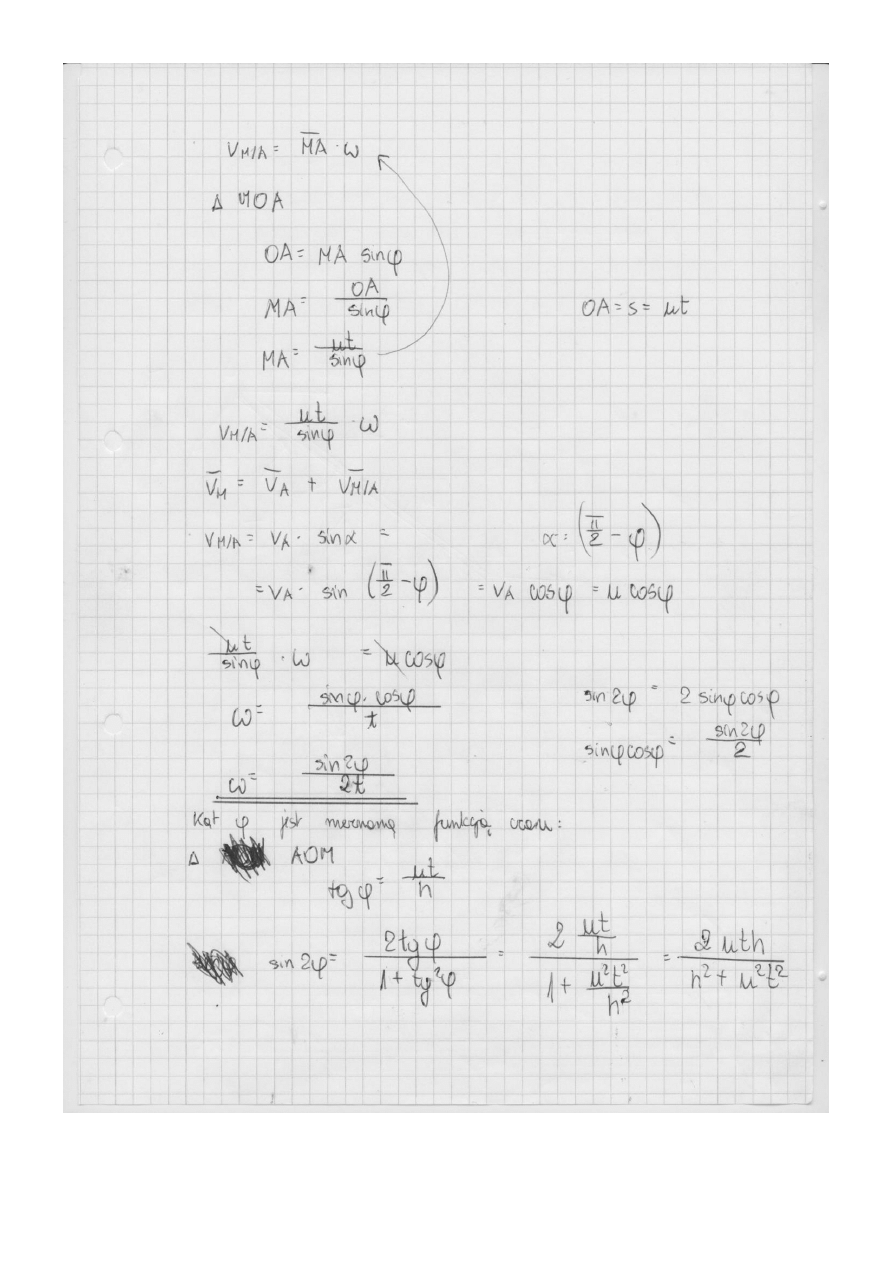 V_M/A = M̅A̅ · ω
Δ MOA
OA = MA sinφ
MA = OA / sinφ
OA = s = ut
MA = ut / sinφ
V_M/A = ut / sinφ · ω
V̅_M = V̅_A + V̅_M/A
V_M/A = V_A · sinα = α = (π/2 - φ)
= V_A · sin (π/2 - φ) = V_A cosφ = u cosφ
ut / sinφ · ω = u cosφ
ω = sinφ · cosφ / t
sin 2φ = 2 sinφ cosφ
sinφcosφ = sin2φ / 2
ω = sin2φ / 2t
Kąt φ jest nieznaną funkcją czasu:
Δ AOM
tgφ = ut / h
sin 2φ = 2tgφ / 1 + tg²φ = 2 ut/h / 1 + u²t²/h² = 2uth / h² + u²t²